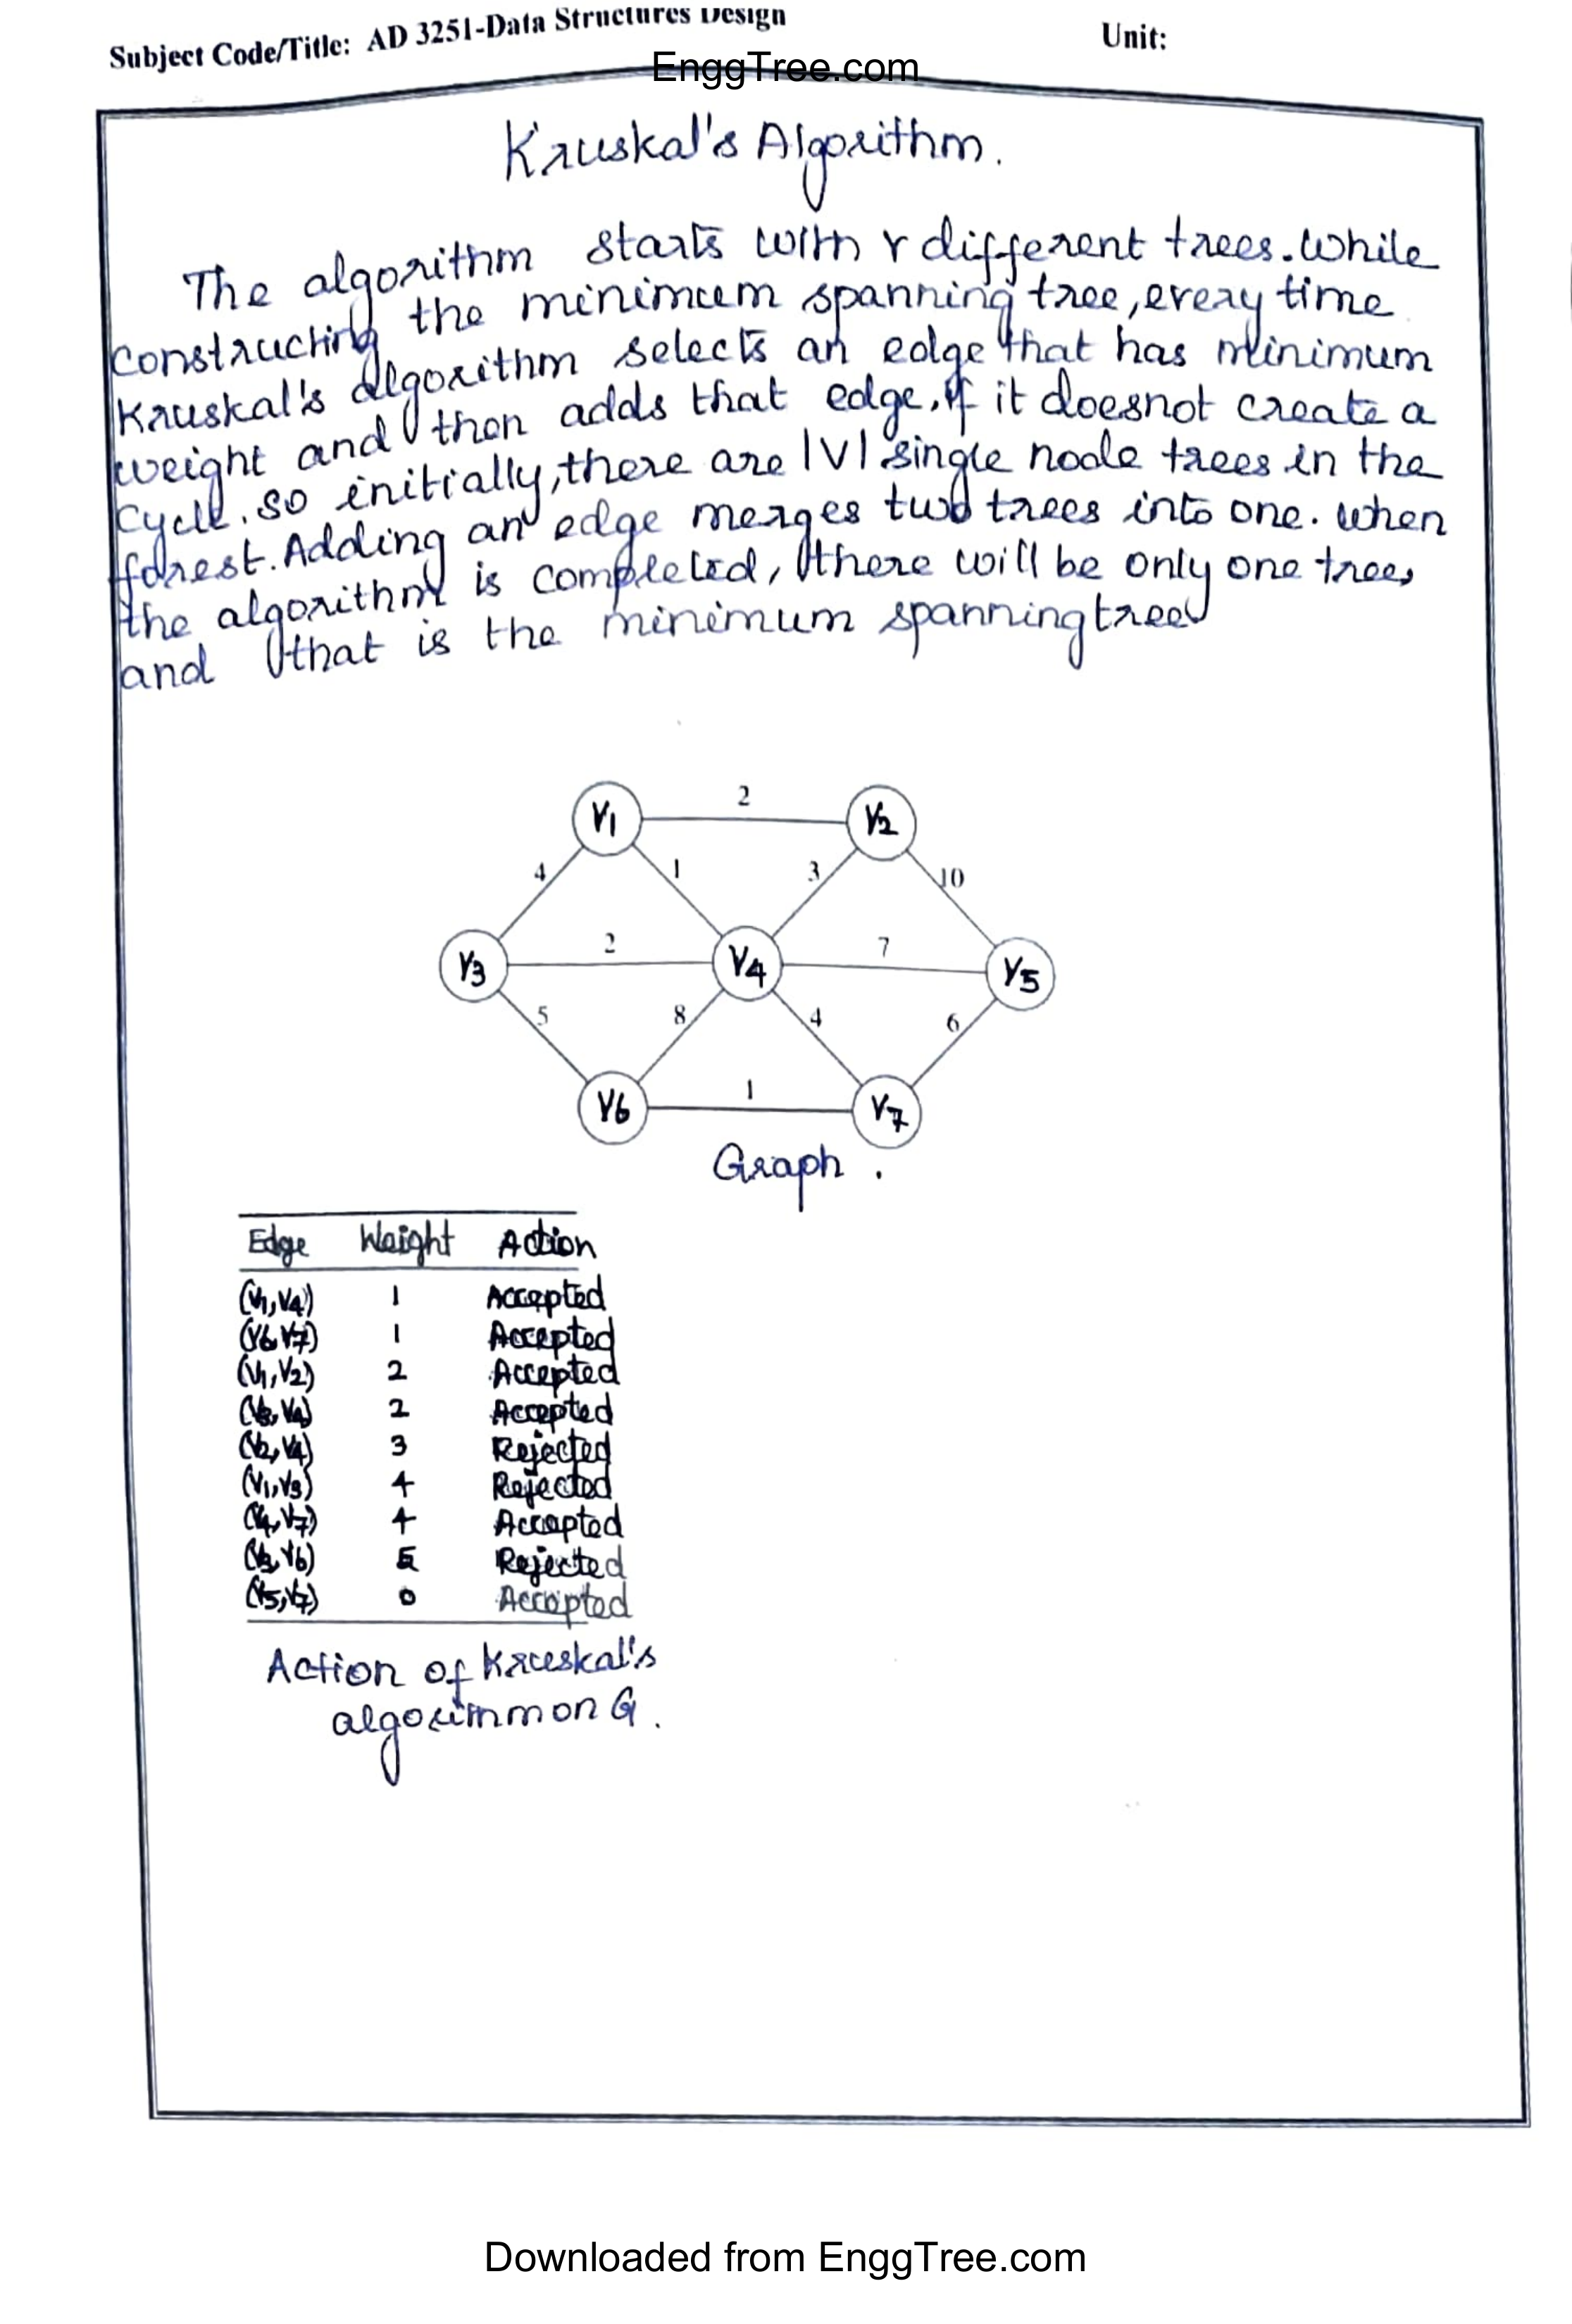 Subject Code/Title: AD 3251-Data Structures Design
Unit:
EnggTree.com
Kruskal's Algorithm.
The algorithm starts with V different trees. While
constructing the minimum spanning tree, every time
Kruskal's algorithm selects an edge that has minimum
weight and then adds that edge, if it doesnot create a
cycle. So initially, there are |V| single node trees in the
forest. Adding an edge merges two trees into one. When
the algorithm is completed, there will be only one tree,
and that is the minimum spanning tree
V1 2 V2
4 1 3 10
V3 2 V4 7 V5
5 8 4 6
V6 1 V7
Graph.
Edge Weight Action
(V1,V4) 1 Accepted
(V6,V7) 1 Accepted
(V1,V2) 2 Accepted
(V3,V4) 2 Accepted
(V2,V4) 3 Rejected
(V1,V3) 4 Rejected
(V4,V7) 4 Accepted
(V3,V6) 5 Rejected
(V5,V7) Accepted
Action of Kruskal's
algorithm on G.
Downloaded from EnggTree.com